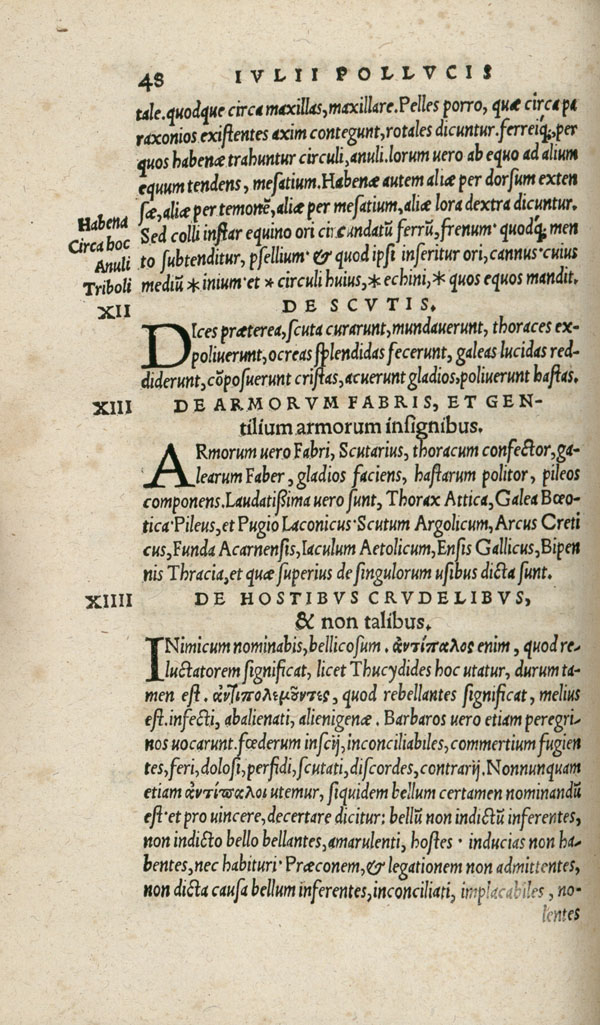 48 IVLII POLLVCIS
tale.quodque circa maxillas,maxillare.Pelles porro, quæ circa pa
raxonios existentes axim contegunt,rotales dicuntur.ferreiq́;,per
quos habenæ trahuntur circuli,anuli.lorum uero ab equo ad alium
equum tendens, mesatium.Habenæ autem aliæ per dorsum exten
sæ,aliæ per temonẽ,aliæ per mesatium,aliæ lora dextra dicuntur.
Habena
Circa hoc
Anuli
Triboli
Sed colli instar equino ori circundatũ ferrũ,frenum· quodq́; men
to subtenditur, psellium· & quod ipsi inseritur ori,cannus·cuius
mediũ *inium·et * circuli huius,* echini,* quos equos mandit.
XII DE SCVTIS.
DIces præterea,scuta curarunt,mundauerunt, thoraces ex-
poliuerunt,ocreas splendidas fecerunt, galeas lucidas red-
diderunt,cõposuerunt cristas,acuerunt gladios,poliuerunt hastas.
XIII DE ARMORVM FABRIS, ET GEN-
tilium armorum insignibus.
ARmorum uero Fabri, Scutarius, thoracum confector,ga-
learum Faber, gladios faciens, hastarum politor, pileos
componens.Laudatißima uero sunt, Thorax Attica,Galea Bœo-
tica·Pileus,et Pugio Laconicus·Scutum Argolicum,Arcus Creti
cus,Funda Acarnensis,Iaculum Aetolicum,Ensis Gallicus,Bipen
nis Thracia,et quæ superius de singulorum usibus dicta sunt.
XIIII DE HOSTIBVS CRVDELIBVS,
& non talibus.
INimicum nominabis,bellicosum. ἀντίπαλος enim, quod re-
luctatorem significat, licet Thucydides hoc utatur, durum ta-
men est. ἀντιπολεμοῦντες, quod rebellantes significat, melius
est.infecti, abalienati, alienigenæ. Barbaros uero etiam peregri-
nos uocarunt.fœderum inscij,inconciliabiles,commertium fugien
tes,feri,dolosi,perfidi,scutati,discordes,contrarij.Nonnunquam
etiam ἀντίπαλοι utemur, siquidem bellum certamen nominandũ
est·et pro uincere,decertare dicitur: bellũ non indictũ inferentes,
non indicto bello bellantes,amarulenti, hostes · inducias non ha-
bentes,nec habituri·Præconem,& legationem non admittentes,
non dicta causa bellum inferentes,inconciliati, implacabiles, no-
lentes